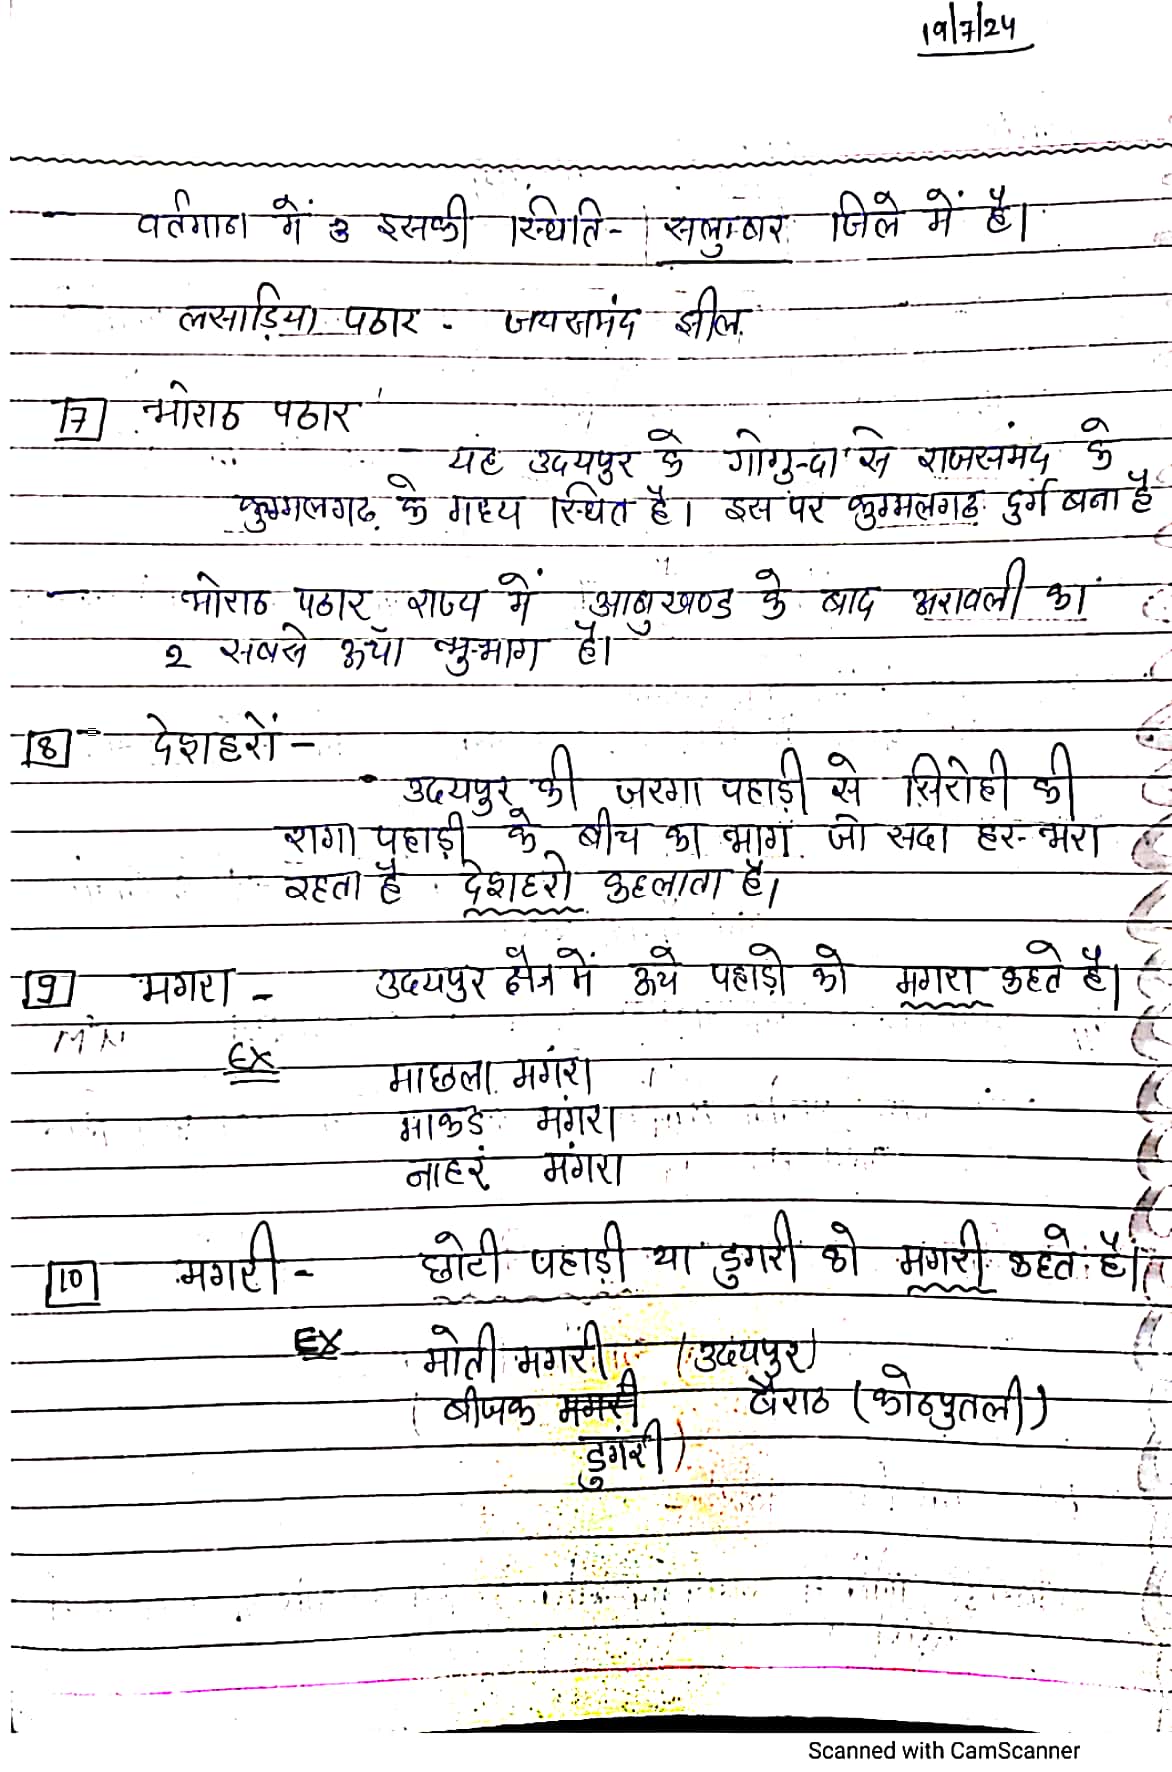 19/7/24
- वर्तमान में इसकी स्थिति - सलुम्बर जिले में है।
लसाड़िया पठार - जयसमंद झील
7 भोराठ पठार
यह उदयपुर के गोगुन्दा से राजसमंद के
कुम्भलगढ़ के मध्य स्थित है। इस पर कुम्भलगढ़ दुर्ग बना है
- भोराठ पठार राज्य में आबुखण्ड के बाद अरावली का
2 सबसे ऊचाँ भु-भाग है।
8 - देशहरों -
• उदयपुर की जरगा पहाड़ी से सिरोही की
रागा पहाड़ी के बीच का भाग जो सदा हर-भरा
रहता है देशहरो कहलाता है।
9 मगरा - उदयपुर क्षैत्र में ऊचे पहाड़ो को मगरा कहते है।
Ex माछला मगंरा
माकड मंगरा
नाहरं मंगरा
10 मगरी - छोटी पहाड़ी या डुगरी को मगरी कहते है।
Ex मोती मगरी (उदयपुर)
(बीजक मगरी बैराठ (कोठपुतली)
डुगंरी)
Scanned with CamScanner